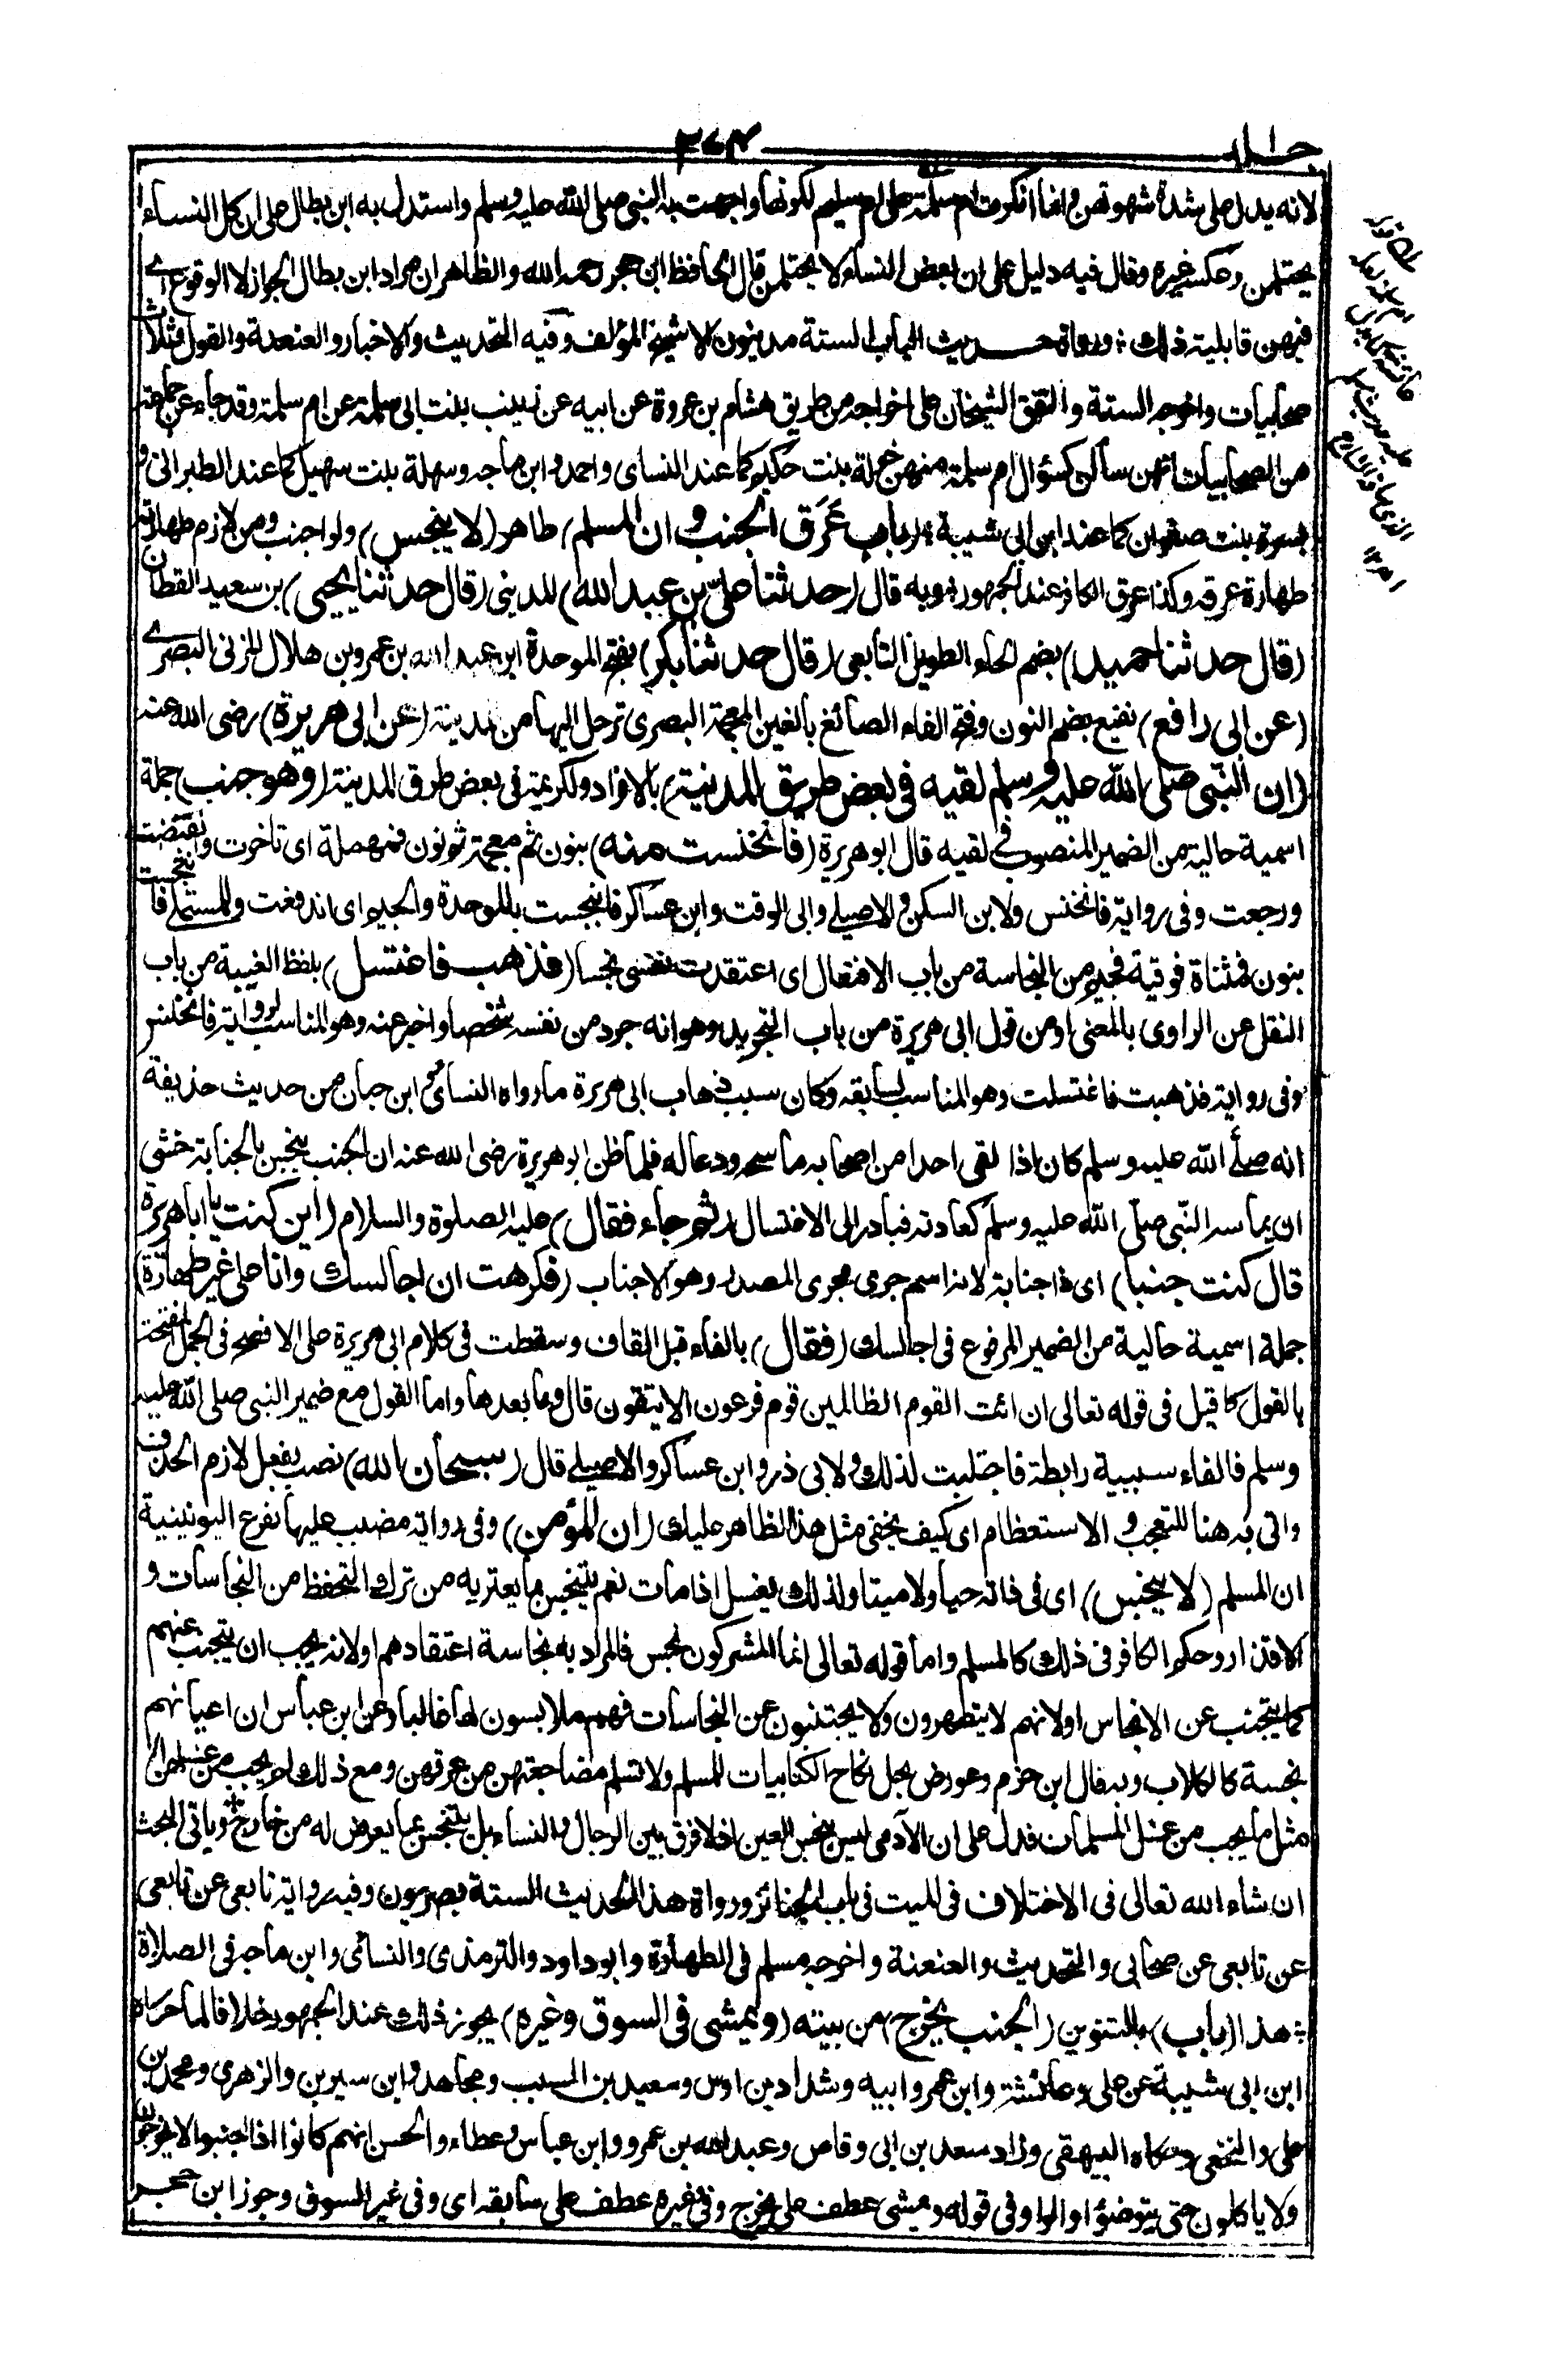 جلد ١
٢٧٤
لانه يدل على شدة شهوتهن وانما انكرت ام سلمة على ام سليم لكونها واجهت به النبي صلى الله عليه وسلم واستدل به ابن بطال على ان كل النساء
يحتلمن وعكسه غيره وقال فيه دليل على ان بعض النساء لا يحتلمن قال الحافظ ابن حجر رحمه الله والظاهر ان مراد ابن بطال الجواز لا الوقوع اے
فيهن قابلية ذلك ؛ ورواة حديث الباب الستة مدنيون الا شيخ المؤلف وفيه التحديث والاخبار والعنعنة والقول وثلاث
صحابيات واخرجه الستة واتفق الشيخان على اخراجه من طريق هشام بن عروة عن ابيه عن زينب بنت ابى سلمة عن ام سلمة وقد جاء عن جماعة
من الصحابيات انهن سألن كسؤال ام سلمة منهن خولة بنت حكيم كما عند النساى واحمد وابن ماجه وسهلة بنت سهيل كما عند الطبرانى و
بسرة بنت صفوان كما عند ابن ابى شيبة ؛ (باب عَرَق الجنب و ان المسلم) طاهر (لا ينجس) ولو اجنب ومن لازم طهارته
طهارة عرقه وكذا عرق الكافر عند الجمهور ؛ وبه قال (حدثنا علىّ بن عبد الله) المدينى (قال حدثنا يحيى) بن سعيد القطان
(قال حدثنا حميد) بضم الحاء الطويل التابعى (قال حدثنا بكر) بفتح الموحدة ابن عبد الله بن عمرو بن هلال المزنى البصرے
(عن ابى رافع) نفيع بضم النون وفتح الفاء الصائغ بالغين المعجمة البصرى ترحل اليها من المدينة (عن ابى هريرة) رضى الله عنه
(ان النّبى صلى الله عليه وسلم لقيه فى بعض طريق المدينة) بالافراد ولكريمة فى بعض طرق المدينة (وهو جنب) جملة
اسمية حالية من الضمير المنصوب فى لقيه قال ابو هريرة (فانخنست منه) بنون ثم معجمة ثم نون فمهملة اى تاخرت وانقبضت
ورجعت وفى رواية فانخنس ولابن السكن والاصيلے وابى الوقت وابن عساكر فانبجست بالموحدة والجيم اى اندفعت وللمستملے فانتجست
بنون فمثناة فوقية فجيم من النجاسة من باب الافتعال اى اعتقدت نفسى نجسا (فذهب فاغتسل) بلفظ الغيبة من باب
النقل عن الراوى بالمعنى او من قول ابى هريرة من باب التجريد وهو انه جرد من نفسه شخصا واخبر عنه وهو المناسب لرواية فانخنس
وفى رواية فذهبت فاغتسلت وهو المناسب لسابقه وكان سبب ذهاب ابى هريرة ما رواه النسائى وابن حبان من حديث حذيفة
انه صلّے الله عليه وسلم كان اذا لقى احدا من اصحابه ماسحه ودعا له فلما ظن ابو هريرة رضى الله عنه ان الجنب ينجس بالجنابة خشى
ان يماسه النّبى صلّى الله عليه وسلم كعادته فبادر الى الاغتسال (ثم جاء فقال) عليه الصلوة والسلام (اين كنت يا ابا هريرة
قال كنت جنبا) اى ذا جنابة لانه اسم جرى مجرى المصدر وهو الاجناب (فكرهت ان اجالسك وانا على غير طهارة)
جملة اسمية حالية من الضمير المرفوع فى اجالسك (فقال) بالفاء قبل القاف وسقطت فى كلام ابى هريرة على الافصح فى الجمل المفتتحة
بالقول كما قيل فى قوله تعالى ان ائت القوم الظالمين قوم فرعون الا يتقون قال وما بعدها واما القول مع ضمير النبى صلى الله عليه
وسلم فالفاء سببية رابطة فاجتلبت لذلك ولابى ذر وابن عساكر والاصيلے قال (سبحان الله) نصب بفعل لازم الحذف
واتى به هنا للتعجب و الاستعظام اى كيف يخفى مثل هذا الظاهر عليك (ان المؤمن) وفى رواية مضبب عليها بفرع اليونينية
ان المسلم (لا ينجس) اى فى ذاته حيا ولا ميتا ولذلك يغسل اذا مات نعم يتنجس بما يعتريه من ترك التحفظ من النجاسات و
الاقذار وحكم الكافر فى ذلك كالمسلم واما قوله تعالى انما المشركون نجس فالمراد به نجاسة اعتقادهم او لانه يجب ان يتجنب عنهم
كما يتجنب عن الانجاس او لانهم لا يتطهرون ولا يجتنبون عن النجاسات فهم ملابسون لها غالبا وعن ابن عباس ان اعيانهم
نجسة كالكلاب وبه قال ابن حزم وعورض بحل نكاح الكتابيات للمسلم ولا تسلم مضاجعتهن من عرقهن ومع ذلك لم يجب من غسلهن الا
مثل ما يجب من غسل المسلمات فدل على ان الآدمى ليس بنجس العين اذ لا فرق بين الرجال والنساء بل يتنجس بما يعرض له من خارج وياتى البحث
ان شاء الله تعالى فى الاختلاف فى الميت فى باب الجنائز ورواة هذا الحديث الستة بصريون وفيه رواية تابعى عن تابعى
عن تابعى عن صحابى والتحديث والعنعنة واخرجه مسلم فى الطهارة وابو داود والترمذى والنسائى وابن ماجه فى الصلاة
؛ هذا (باب) بالتنوين (الجنب يخرج) من بيته (ويمشى فى السوق وغيره) يجوز ذلك عند الجمهور خلافا لما حكاه
ابن ابى شيبة عن على وعائشة وابن عمر وابيه وشداد بن اوس وسعيد بن المسيب ومجاهد وابن سيرين والزهرى ومحمد بن
على والنخعى وحكاه البيهقى وزاد سعد بن ابى وقاص وعبد الله بن عمرو وابن عباس وعطاء والحسن انهم كانوا اذا اجنبوا لا يخرجون
ولا ياكلون حتى يتوضؤا والواو فى قوله ويمشى عطف على يخرج وفى غيره عطف على سابقه اى وفى غير السوق وجوز ابن حجر